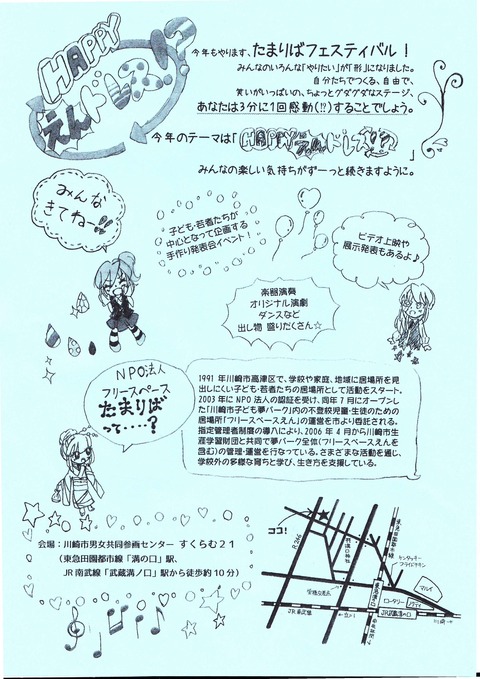 HAPPY
えんドレス!?
今年もやります、たまりばフェスティバル！
みんなのいろんな「やりたい」が「形」になりました。
自分たちでつくる、自由で、
笑いがいっぱいの、ちょっとグダグダなステージ、
あなたは3分に1回感動(!?)することでしょう。
今年のテーマは「HAPPYえんドレス!?」
みんなの楽しい気持ちがず一っと続きますように。
みんな
きてねー!!
子ども・若者たちが
中心となって企画する
手作り発表会イベント！
ビデオ上映や
展示発表もあるよ♪
楽器演奏
オリジナル演劇
ダンスなど
出し物 盛りだくさん☆
NPO法人
フリースペース
たまりば
って……?
1991年川崎市高津区で、学校や家庭、地域に居場所を見
出しにくい子ども・若者たちの居場所として活動をスタート。
2003年にNPO法人の認証を受け、同年7月にオープンし
た「川崎市子ども夢パーク」内の不登校児童・生徒のための
居場所「フリースペースえん」の運営を市より委託される。
指定管理者制度の導入により、2006年4月から川崎市生
涯学習財団と共同で夢パーク全体（フリースペースえんを
含む）の管理・運営を行なっている。さまざまな活動を通し、
学校外の多様な育ちと学び、生き方を支援している。
会場：川崎市男女共同参画センター すくらむ21
（東急田園都市線「溝の口」駅、
JR南武線「武蔵溝ノ口」駅から徒歩約10分）
ココ!
R246
東急田園都市線
ケンタッキー
フライドチキン
マルイ
ロータリー
ノクティ
東急溝の口
JR武蔵溝の口
JR南武線
←立川
川崎→